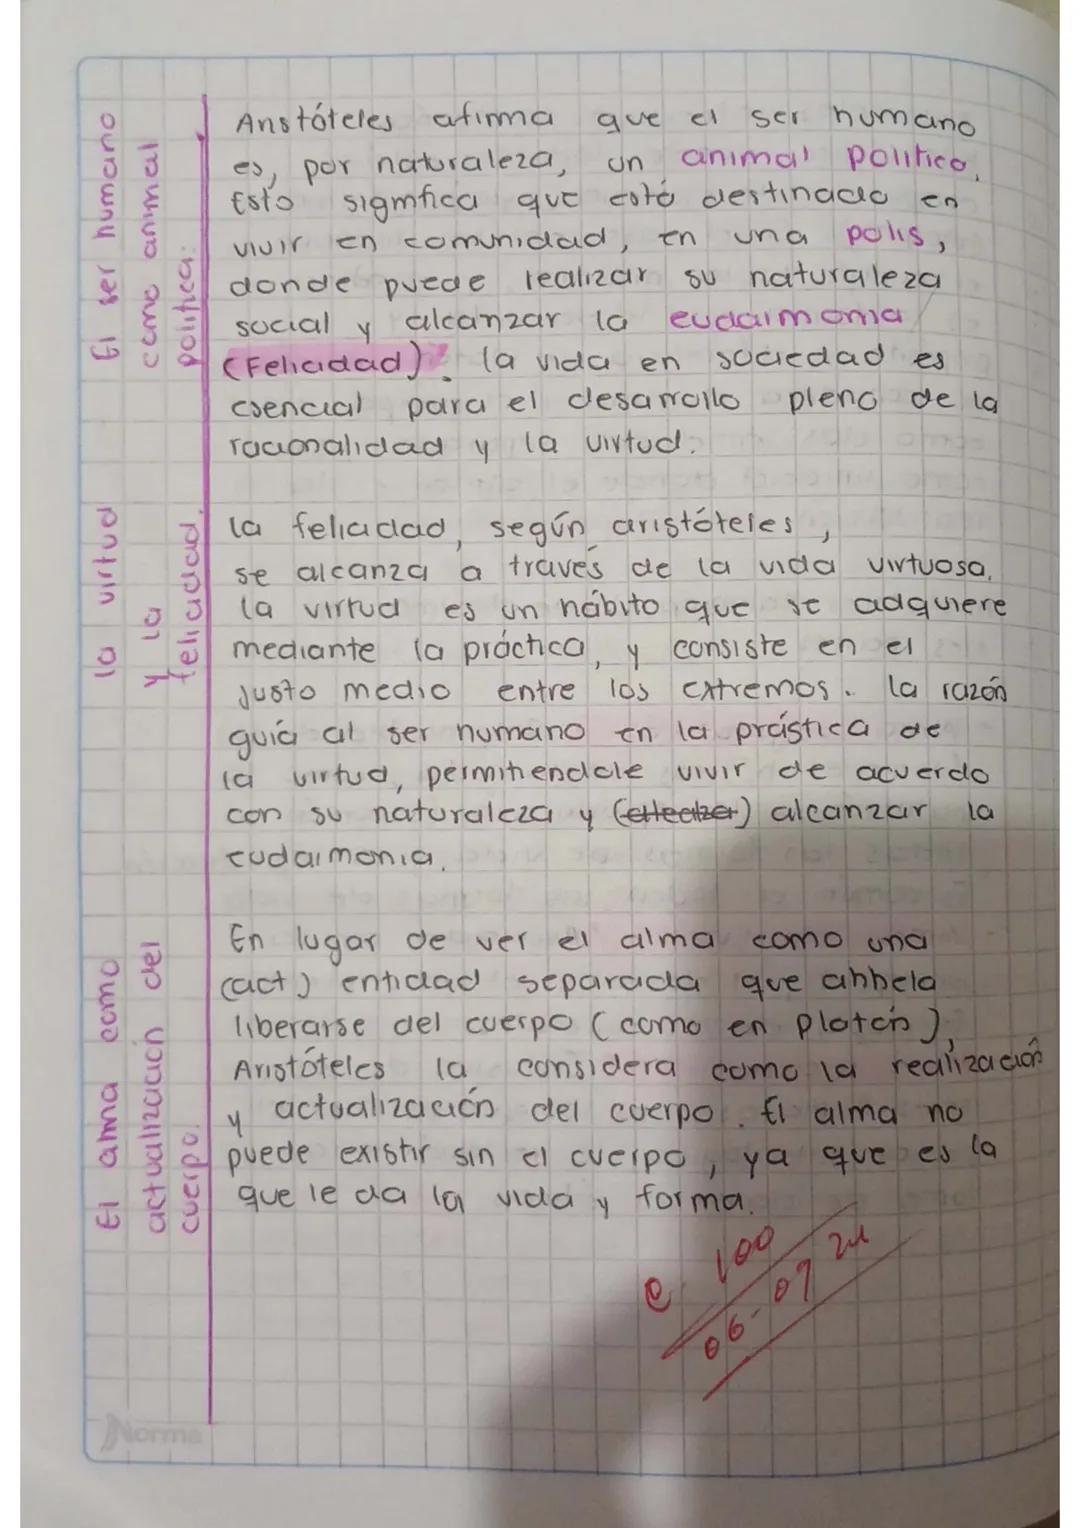 El ser humano
como animal
politica:
Aristóteles afirma que el ser humano
es, por naturaleza, un animal politico.
Esto significa que está destinado en
vivir en comunidad, en una polis,
donde puede realizar su naturaleza
social y alcanzar la eudaimonia
(Felicidad). la vida en sociedad es
esencial para el desarrollo pleno de la
racionalidad y la virtud.
la virtud
y la
felicidad.
la felicidad, según aristóteles,
se alcanza a través de la vida virtuosa.
la virtud es un hábito que se adquiere
mediante la práctica, y consiste en el
justo medio entre los extremos. la razón
guía al ser humano en la prástica de
la virtud, permitiendole vivir de acuerdo
con su naturaleza y alcanzar la
eudaimonia.
El alma como
actualización del
cuerpo.
En lugar de ver el alma como una
(act) entidad separada que anhela
liberarse del cuerpo (como en platón),
Aristóteles la considera como la realización
y actualización del cuerpo. El alma no
puede existir sin el cuerpo, ya que es la
que le da la vida y forma.
100
06-07 24
Norma